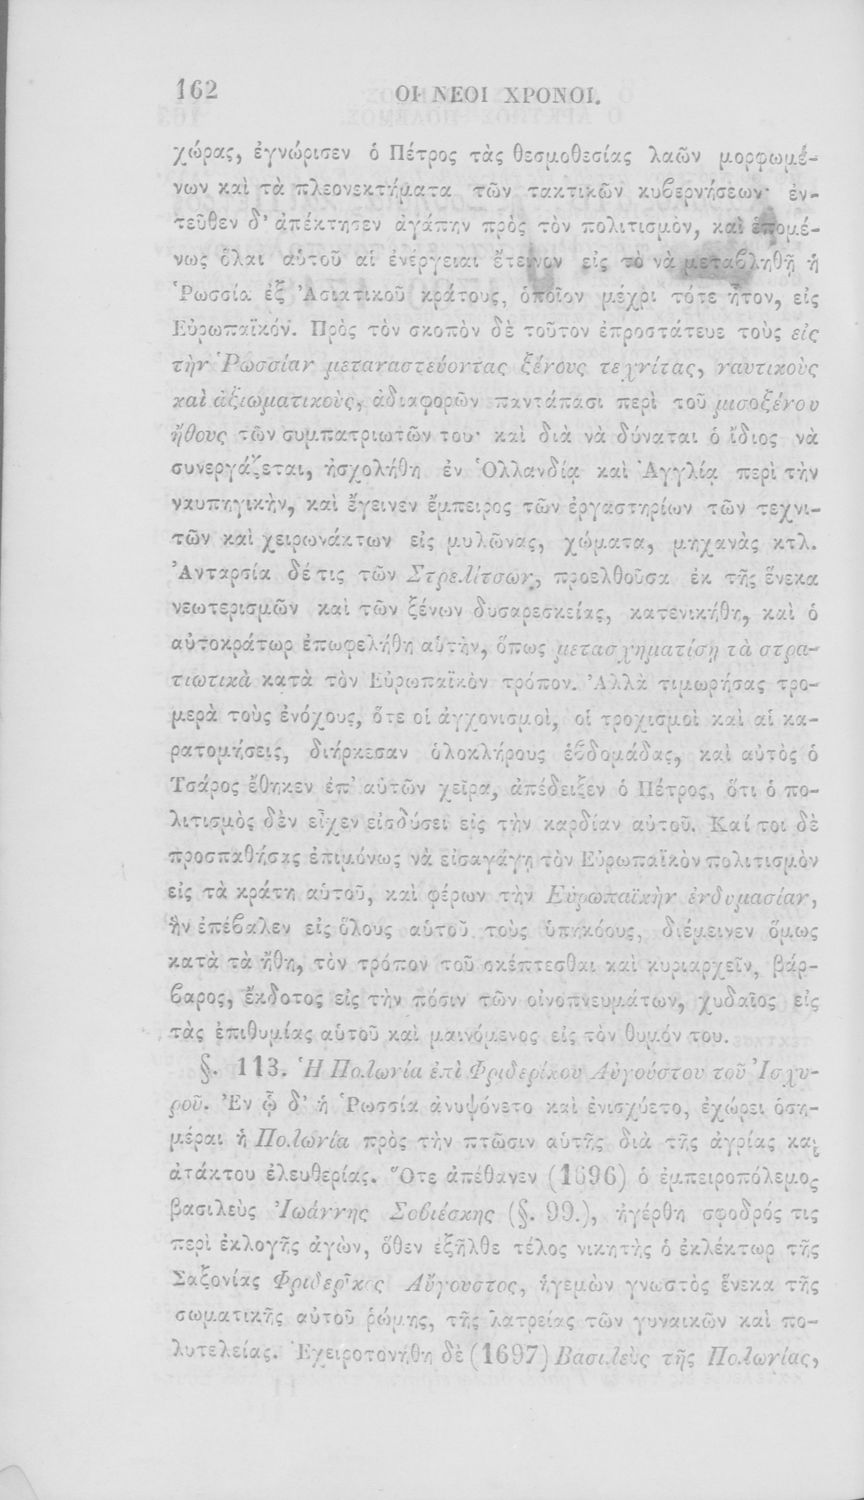 162 ΟΙ ΝΕΟΙ ΧΡΟΝΟΙ.
χώρας, ἐγνώρισεν ὁ Πέτρος τὰς θεσμοθεσίας λαῶν μορφωμέ-
νων καὶ τὰ πλεονεκτήματα τῶν τακτικῶν κυβερνήσεων· ἐν-
τεῦθεν δ' ἀπέκτησεν ἀγάπην πρὸς τὸν πολιτισμὸν, καὶ ἑπομέ-
νως ὅλαι αὐτοῦ αἱ ἐνέργειαι ἔτεινον εἰς τὸ νὰ μεταβληθῇ ἡ
Ῥωσσία ἐξ Ἀσιατικοῦ κράτους, ὁποῖον μέχρι τότε ἦτον, εἰς
Εὐρωπαϊκόν. Πρὸς τὸν σκοπὸν δὲ τοῦτον ἐπροστάτευε τοὺς εἰς
τὴν Ῥωσσίαν μεταναστεύοντας ξένους τεχνίτας, ναυτικοὺς
καὶ ἀξιωματικοὺς, ἀδιαφορῶν παντάπασι περὶ τοῦ μισοξένου
ἤθους τῶν συμπατριωτῶν του· καὶ διὰ νὰ δύναται ὁ ἴδιος νὰ
συνεργάζεται, ἠσχολήθη ἐν Ὁλλανδίᾳ καὶ Ἀγγλίᾳ περὶ τὴν
ναυπηγικὴν, καὶ ἔγεινεν ἔμπειρος τῶν ἐργαστηρίων τῶν τεχνι-
τῶν καὶ χειρωνάκτων εἰς μυλῶνας, χώματα, μηχανὰς κτλ.
Ἀνταρσία δέ τις τῶν Στρελίτσων, προελθοῦσα ἐκ τῆς ἕνεκα
νεωτερισμῶν καὶ τῶν ξένων δυσαρεσκείας, κατενικήθη, καὶ ὁ
αὐτοκράτωρ ἐπωφελήθη αὐτὴν, ὅπως μετασχηματίσῃ τὰ στρα-
τιωτικὰ κατὰ τὸν Εὐρωπαϊκὸν τρόπον. Ἀλλὰ τιμωρήσας τρο-
μερὰ τοὺς ἐνόχους, ὅτε οἱ ἀγχονισμοὶ, οἱ τροχισμοὶ καὶ αἱ κα-
ρατομήσεις, διήρκεσαν ὁλοκλήρους ἑβδομάδας, καὶ αὐτὸς ὁ
Τσάρος ἔθηκεν ἐπ' αὐτῶν χεῖρα, ἀπέδειξεν ὁ Πέτρος, ὅτι ὁ πο-
λιτισμὸς δὲν εἶχεν εἰσδύσει εἰς τὴν καρδίαν αὐτοῦ. Καί τοι δὲ
προσπαθήσας ἐπιμόνως νὰ εἰσαγάγῃ τὸν Εὐρωπαϊκὸν πολιτισμὸν
εἰς τὰ κράτη αὐτοῦ, καὶ φέρων τὴν Εὐρωπαϊκὴν ἐνδυμασίαν,
ἣν ἐπέβαλεν εἰς ὅλους αὐτοῦ τοὺς ὑπηκόους, διέμεινεν ὅμως
κατὰ τὰ ἤθη, τὸν τρόπον τοῦ σκέπτεσθαι καὶ κυριαρχεῖν, βάρ-
βαρος, ἔκδοτος εἰς τὴν πόσιν τῶν οἰνοπνευμάτων, χυδαῖος εἰς
τὰς ἐπιθυμίας αὐτοῦ καὶ μαινόμενος εἰς τὸν θυμόν του.
§. 113. Ἡ Πολωνία ἐπὶ Φριδερίκου Αὐγούστου τοῦ Ἰσχυ-
ροῦ. Ἐν ᾧ δ' ἡ Ῥωσσία ἀνυψόνετο καὶ ἐνισχύετο, ἐχώρει ὁση-
μέραι ἡ Πολωνία πρὸς τὴν πτῶσιν αὐτῆς διὰ τῆς ἀγρίας καὶ
ἀτάκτου ἐλευθερίας. Ὅτε ἀπέθανεν (1696) ὁ ἐμπειροπόλεμος
βασιλεὺς Ἰωάννης Σοβιέσκης (§. 99.), ἠγέρθη σφοδρός τις
περὶ ἐκλογῆς ἀγὼν, ὅθεν ἐξῆλθε τέλος νικητὴς ὁ ἐκλέκτωρ τῆς
Σαξονίας Φριδερῖκος Αὔγουστος, ἡγεμὼν γνωστὸς ἕνεκα τῆς
σωματικῆς αὐτοῦ ῥώμης, τῆς λατρείας τῶν γυναικῶν καὶ πο-
λυτελείας. Ἐχειροτονήθη δὲ (1697) Βασιλεὺς τῆς Πολωνίας,